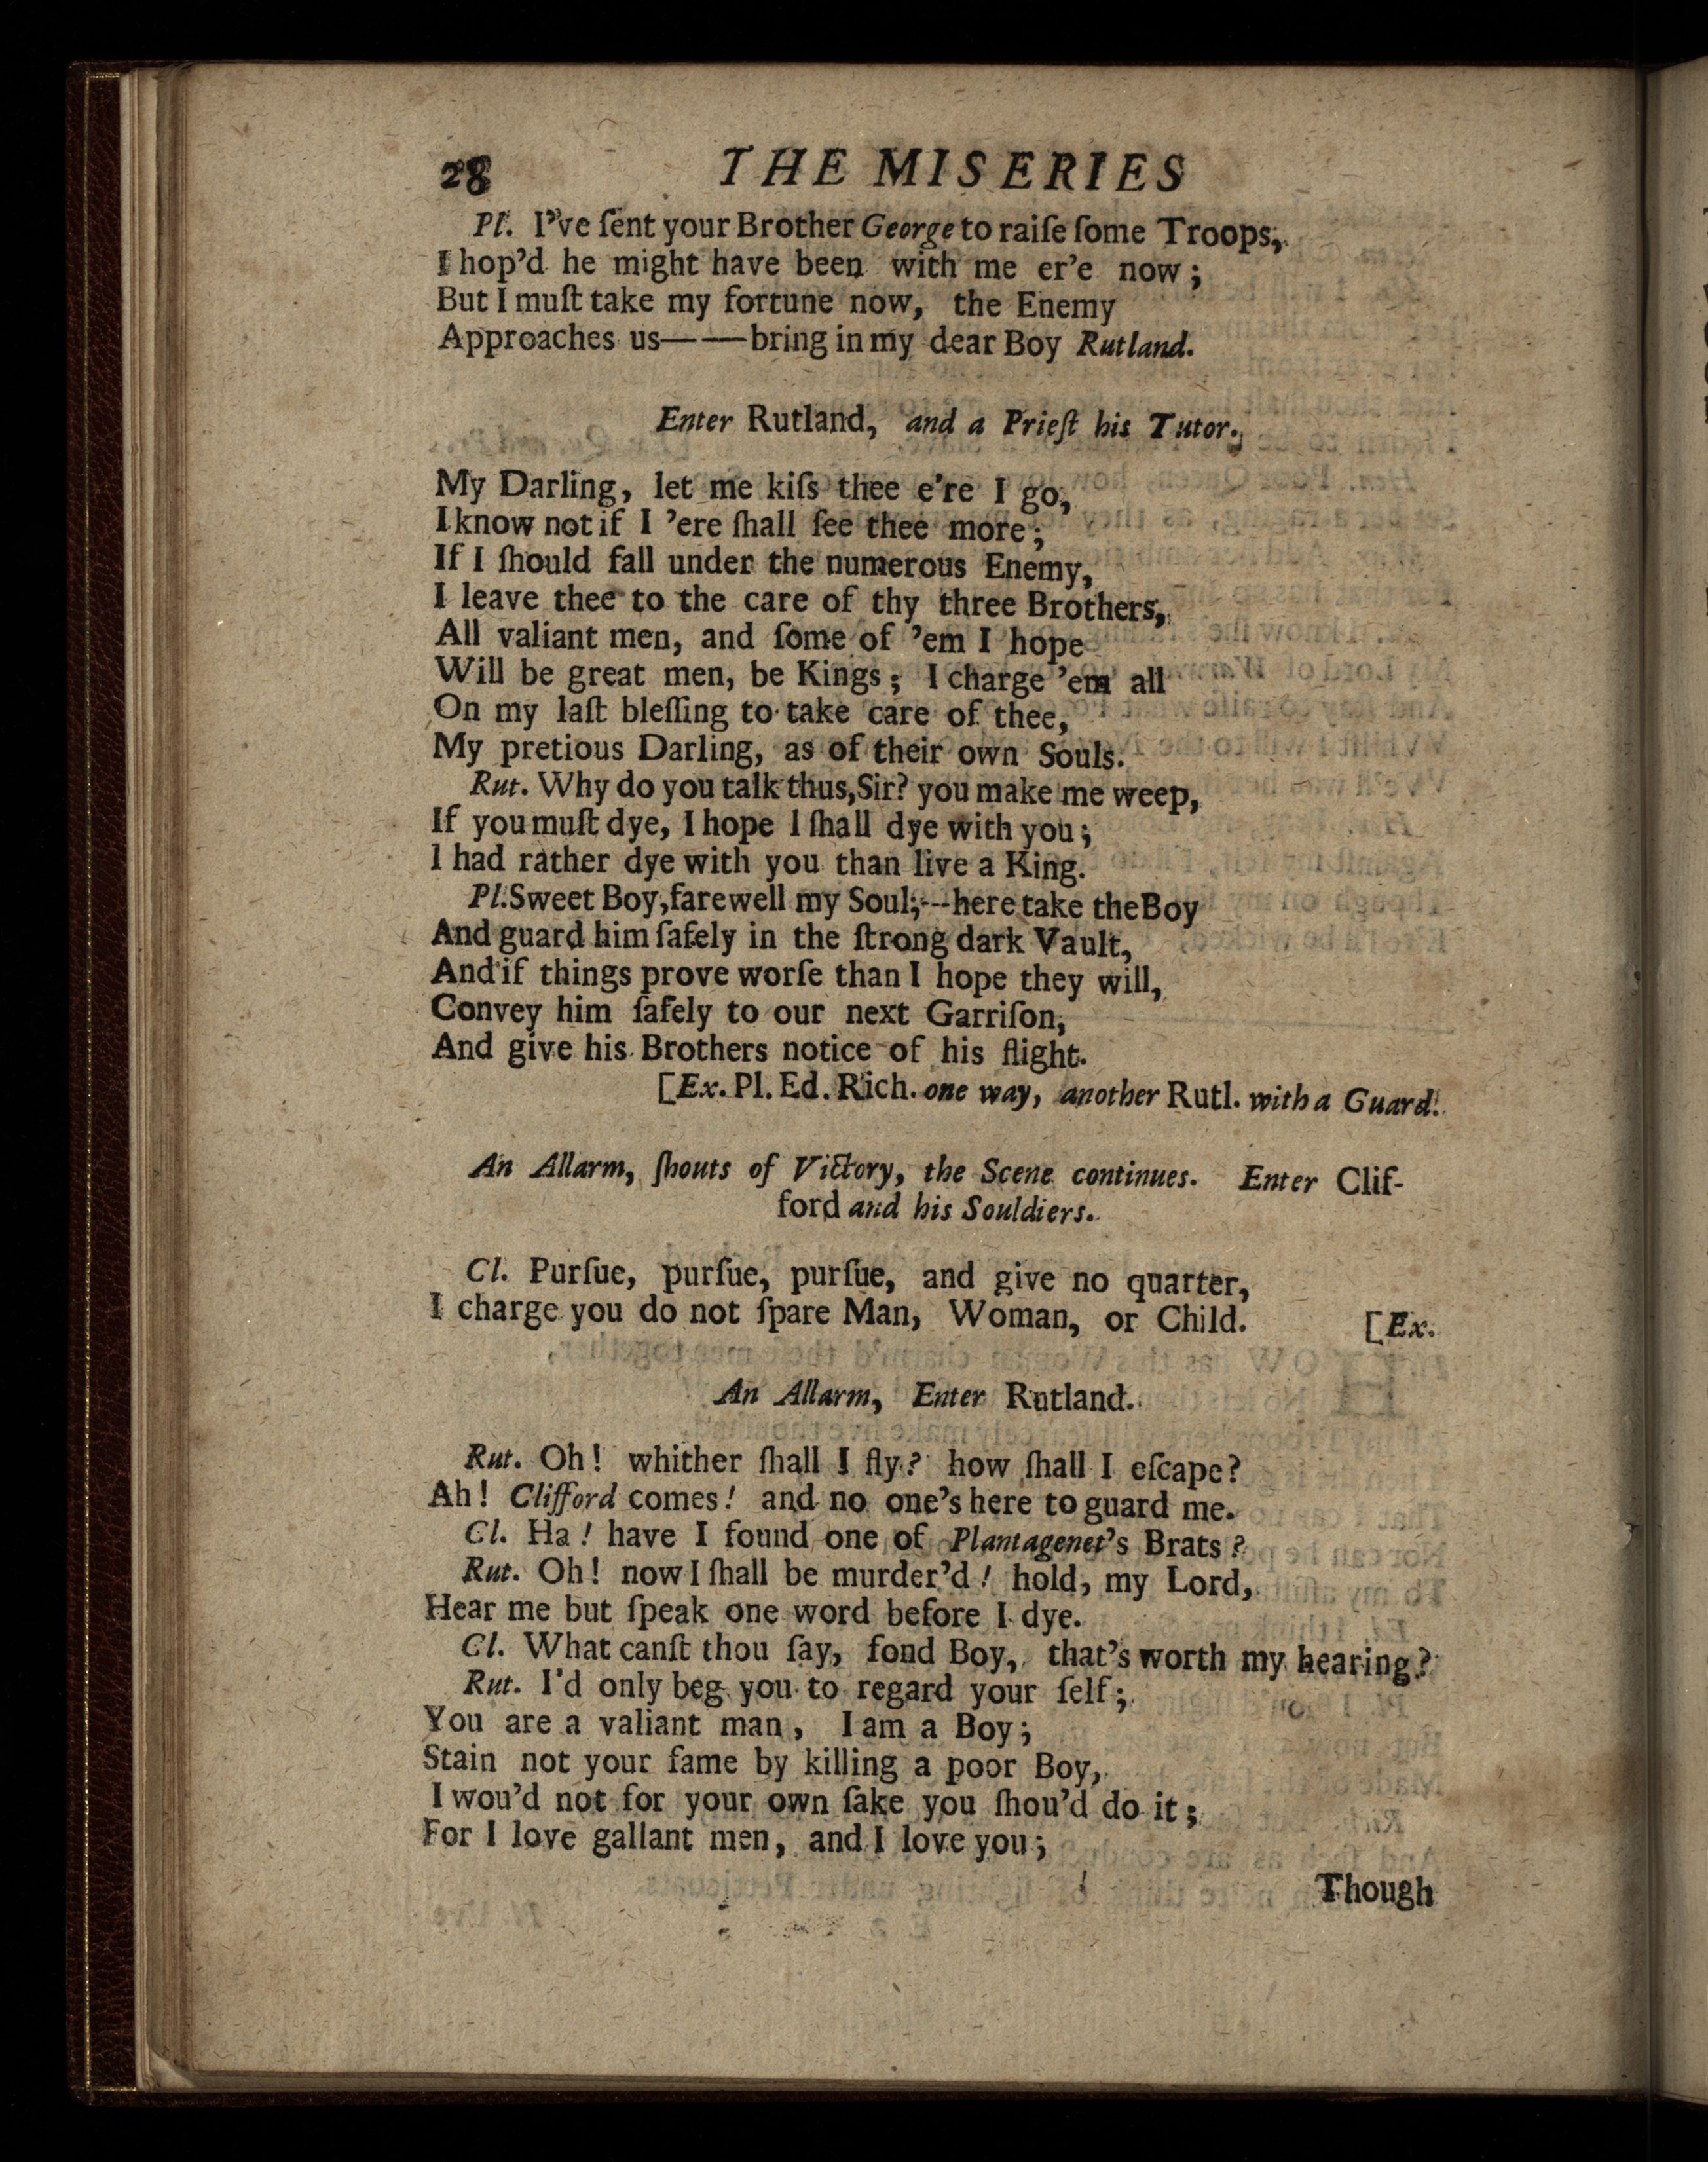 28 THE MISERIES
Pl. I've ſent your Brother George to raiſe ſome Troops,
I hop'd he might have been with me er'e now;
But I muſt take my fortune now, the Enemy
Approaches us——bring in my dear Boy Rutland.
Enter Rutland, and a Prieſt his Tutor.
My Darling, let me kiſs thee e're I go,
I know not if I 'ere ſhall ſee thee more;
If I ſhould fall under the numerous Enemy,
I leave thee to the care of thy three Brothers,
All valiant men, and ſome of 'em I hope
Will be great men, be Kings; I charge 'em all
On my laſt bleſſing to take care of thee,
My pretious Darling, as of their own Souls.
Rut. Why do you talk thus, Sir? you make me weep,
If you muſt dye, I hope I ſhall dye with you;
I had rather dye with you than live a King.
Pl. Sweet Boy, farewell my Soul;---here take the Boy
And guard him ſafely in the ſtrong dark Vault,
And if things prove worſe than I hope they will,
Convey him ſafely to our next Garriſon,
And give his Brothers notice of his flight.
[Ex. Pl. Ed. Rich. one way, another Rutl. with a Guard.
An Allarm, ſhouts of Victory, the Scene continues. Enter Clif-
ford and his Souldiers.
Cl. Purſue, purſue, purſue, and give no quarter,
I charge you do not ſpare Man, Woman, or Child. [Ex.
An Allarm, Enter Rutland.
Rut. Oh! whither ſhall I fly? how ſhall I eſcape?
Ah! Clifford comes! and no one's here to guard me.
Cl. Ha! have I found one of Plantagenet's Brats?
Rut. Oh! now I ſhall be murder'd! hold, my Lord,
Hear me but ſpeak one word before I dye.
Cl. What canſt thou ſay, fond Boy, that's worth my hearing?
Rut. I'd only beg you to regard your ſelf;
You are a valiant man, I am a Boy;
Stain not your fame by killing a poor Boy,
I wou'd not for your own ſake you ſhou'd do it;
For I love gallant men, and I love you;
Though